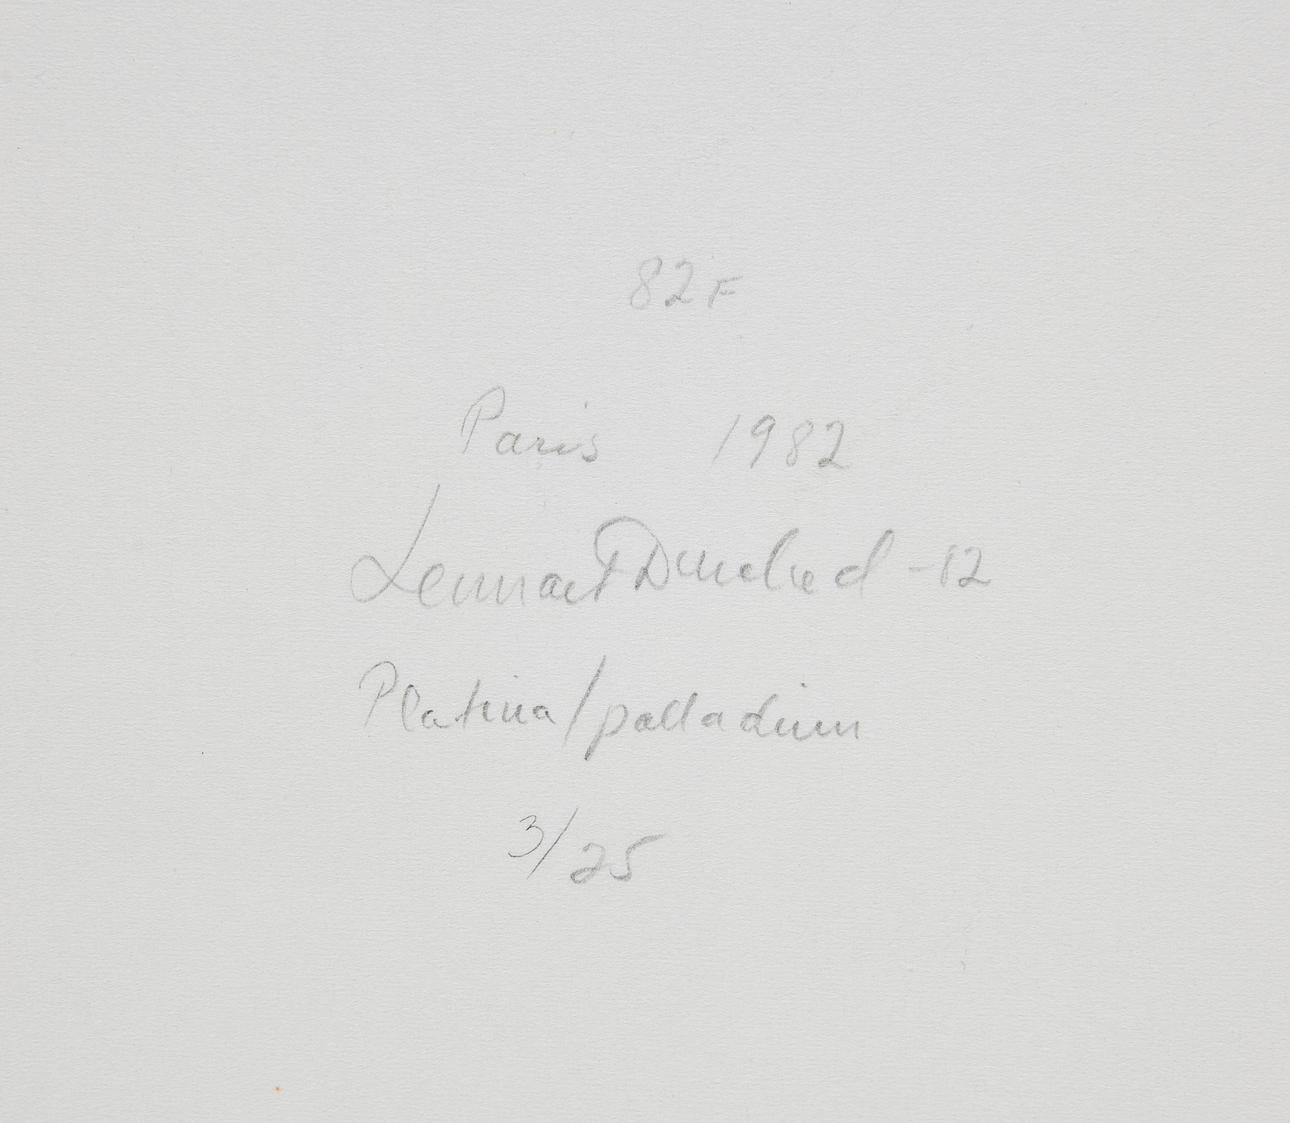 82F
Paris 1982
Lennart Durehed -12
Platina/palladium
3/25